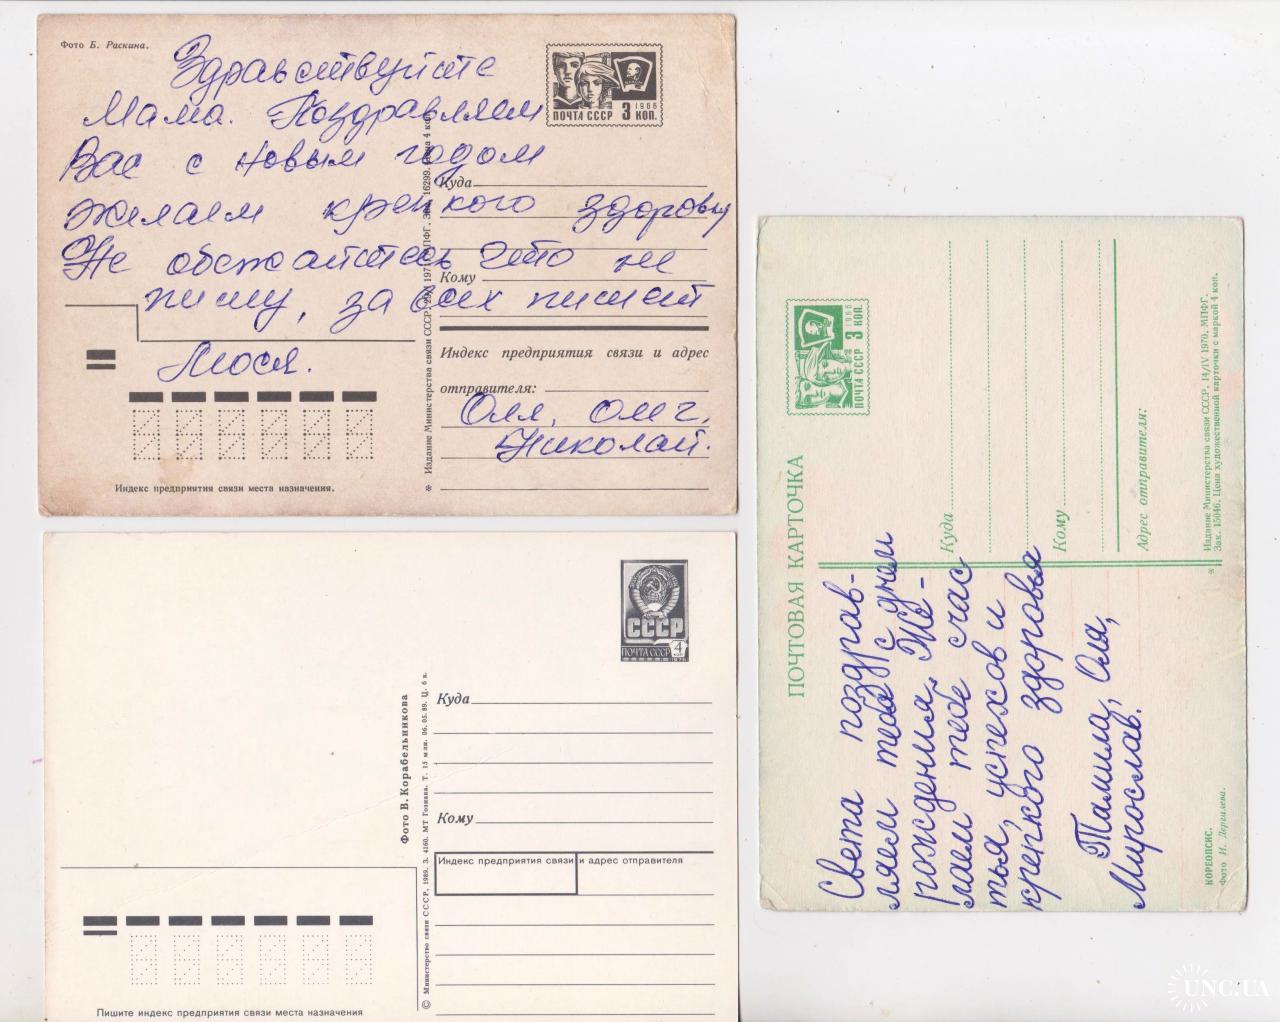 Фото Б. Раскина.
Здравствуйте
Мама. Поздравляем
Вас с новым годом
желаем крепкого здоровья
Не обежайтесь что не
пишу, за всех пишет
Люся.
Оля, 
Николай.
ПОЧТА СССР 3 КОП.
1966
Куда
Кому
Индекс предприятия связи и адрес
отправителя:
Индекс предприятия связи места назначения.
СССР
ПОЧТА СССР 4
Куда
Кому
Индекс предприятия связи и адрес отправителя
Фото В. Корабельникова
© Министерство связи СССР, 1989. З. 4160. МТ Гознака. Т. 15 млн. 06.05.89. Ц. 6 к.
Пишите индекс предприятия связи места назначения
ПОЧТОВАЯ КАРТОЧКА
ПОЧТА СССР 3 КОП.
1966
Света поздрав-
ляем тебя с днем
рождения. Же-
лаем тебе счас
тья, успехов и
крепкого здоровья
Тамила, Оля,
Мирослав.
Куда
Кому
Адрес отправителя:
* Издание Министерства связи СССР. 14/IV 1970. МПФГ.
Зак. 15046. Цена художественной карточки с маркой 4 коп.
КОРЕОПСИС.
Фото И. Дергилева.
UNC.UA